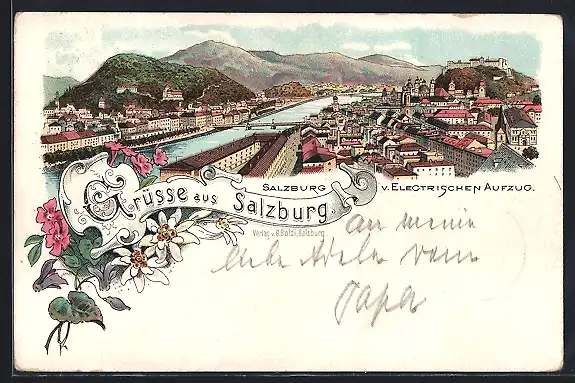 SALZBURG V. ELECTRISCHEN AUFZUG.
Grüsse aus Salzburg.
Verlag v. B. Baldi, Salzburg.
an meine
liebe Adele vom
Papa